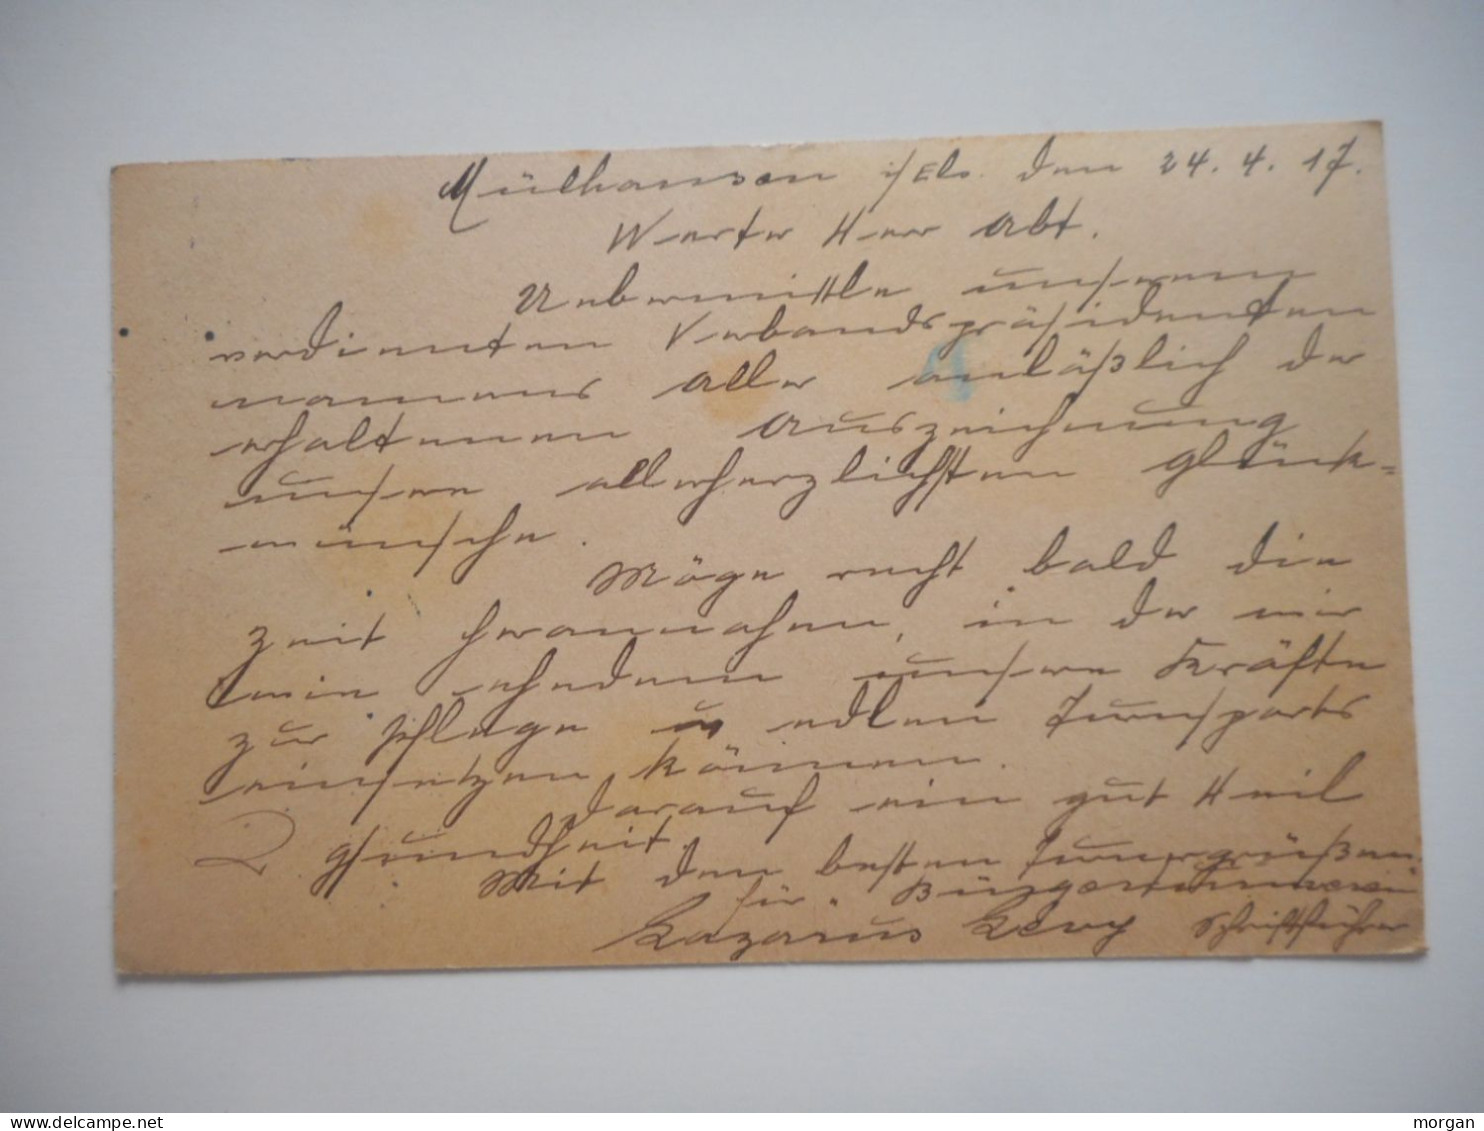 Mülhausen i/Els. den 24. 4. 17.
Werter Herr Abt.
Uebermittle unserem
verdienten Verbandspräsidenten
namens aller anläßlich der
erhaltenen Auszeichnung
unsere allerherzlichsten Glück-
wünsche.
Möge recht bald die
Zeit herannahen, in der wir
wie ehedem unsere Kräfte
zur Pflege u edlen Turnsports
einsetzen können.
Darauf ein gut Heil
Gesundheit.
Mit den besten Turnergrüßen
für " Bürgerturnverein
Lazarus Levy Schriftführer
delcampe.net
morgan